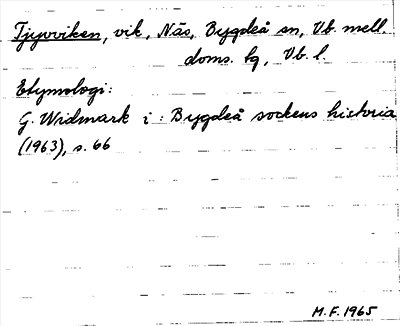 Tjuvviken, vik, Näs, Bygdeå sn, Vb. mell.
doms. hg, Vb. l.
Etymologi:
G. Widmark i: Bygdeå sockens historia
(1963), s. 66
M.F. 1965